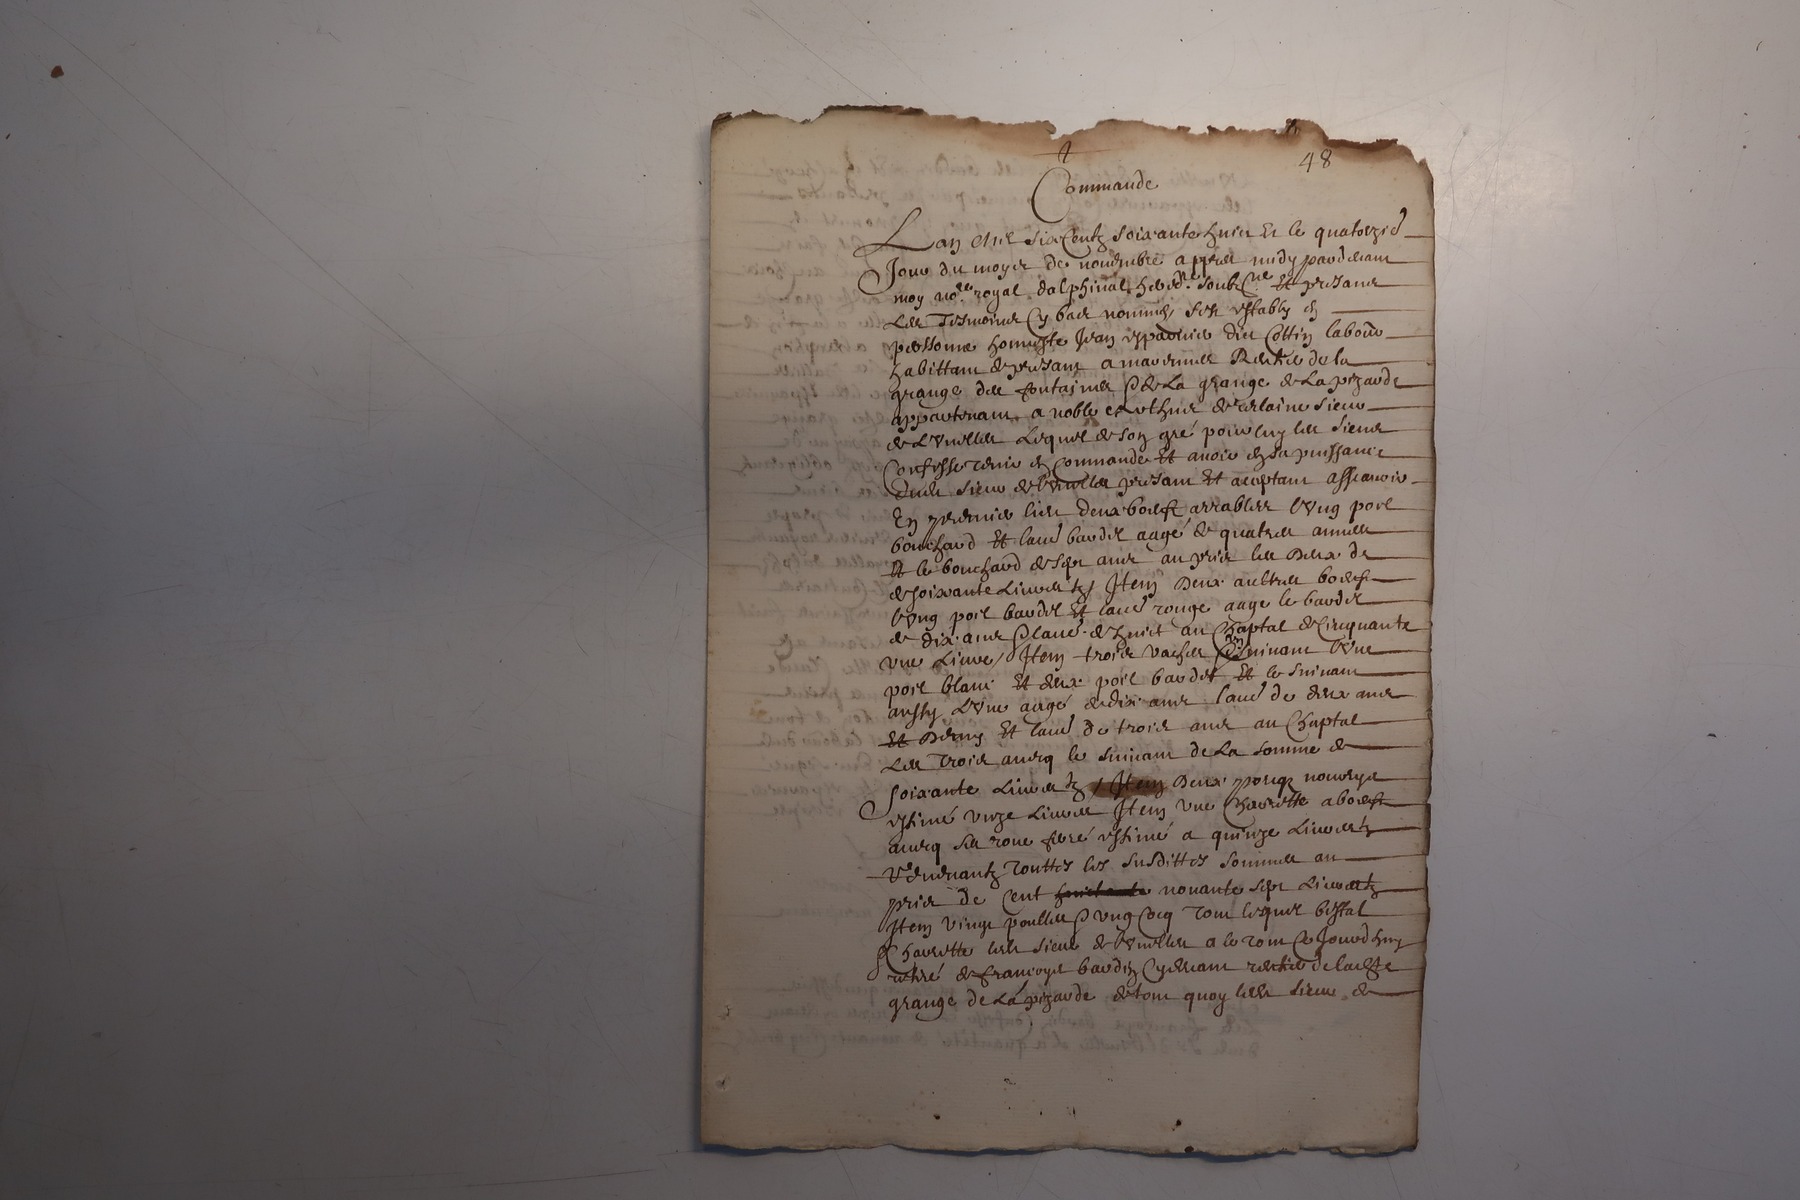 48
Commande
Lan mil six centz soixante huict et le quatorzie
Jour du moys de novembre appres midy pardevant
moy no.re royal dalphinal hered.re soubz.né et presance
Les tesmoins cy bas nommés sest estably en
personne honneste Jean dict Cottin labour
habittant de presant a Rentier de la
grange des fontaines & de La grange de La pizarde
appartenant a noble de sieur
de Lequel de son gré pour luy les siens
Confesse tenir en Commande Et avoir en sa puissance
dudt sieur de presant Et aceptant assavoir
En premier lieu deux boeufs arrables lung poil
bouchard Et laue bardel aagé de quatres annees
Et le bouchard de sept ans au prix les deux de
de soixante Livres tz / Item deux aultres boeufs
lung poil bardel Et laue rouge aagé le bardel
de dix ans & laue de huict au Chaptal de Cinquante
une Livre / Item trois vaches suivant lune
poil blanc Et deux poil bardel Et le suivant
aussy lune aagé de dix ans laue de deux ans
Et demy Et laue de trois ans au Chaptal
Les trois avecq le suivant de La somme de
soixante Livres tz / Item deux
estimé unze Livres Item une Charrette a boeufs
avecq ses roue ferré estimé a quinze Livres tz
Revenantz touttes les susdittes sommes au
prix de Cent nonante sept Livres tz
Item vingt poulles & ung Cocq tout lequel bestal
& Charrette ledt sieur de a le tout Ce Jourdhuy
retiré de francoys bardin Cydevant rentier de ladte
grange de La pizarde de tout quoy ledt sieur de